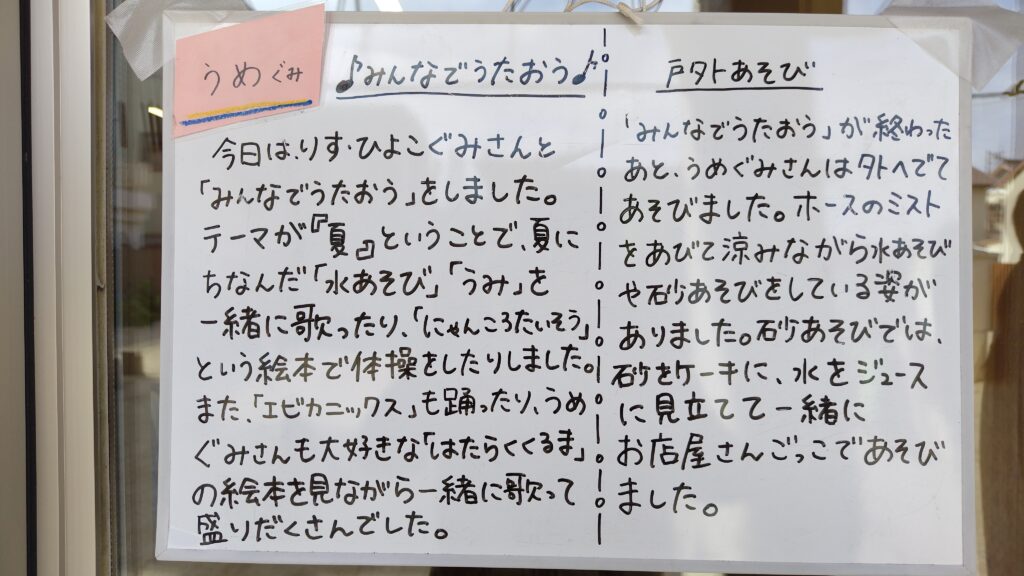 うめぐみ
♪みんなでうたおう♪
今日は、りす・ひよこぐみさんと
「みんなでうたおう」をしました。
テーマが『夏』ということで、夏に
ちなんだ「水あそび」「うみ」を
一緒に歌ったり、「にゃんころたいそう」
という絵本で体操をしたりしました。
また、「エビカニックス」も踊ったり、うめ
ぐみさんも大好きな「はたらくくるま」
の絵本を見ながら一緒に歌って
盛りだくさんでした。
戸外あそび
「みんなでうたおう」が終わった
あと、うめぐみさんは外へでて
あそびました。ホースのミスト
をあびて涼みながら水あそび
や砂あそびをしている姿が
ありました。砂あそびでは、
砂をケーキに、水をジュース
に見立てて一緒に
お店屋さんごっこであそび
ました。